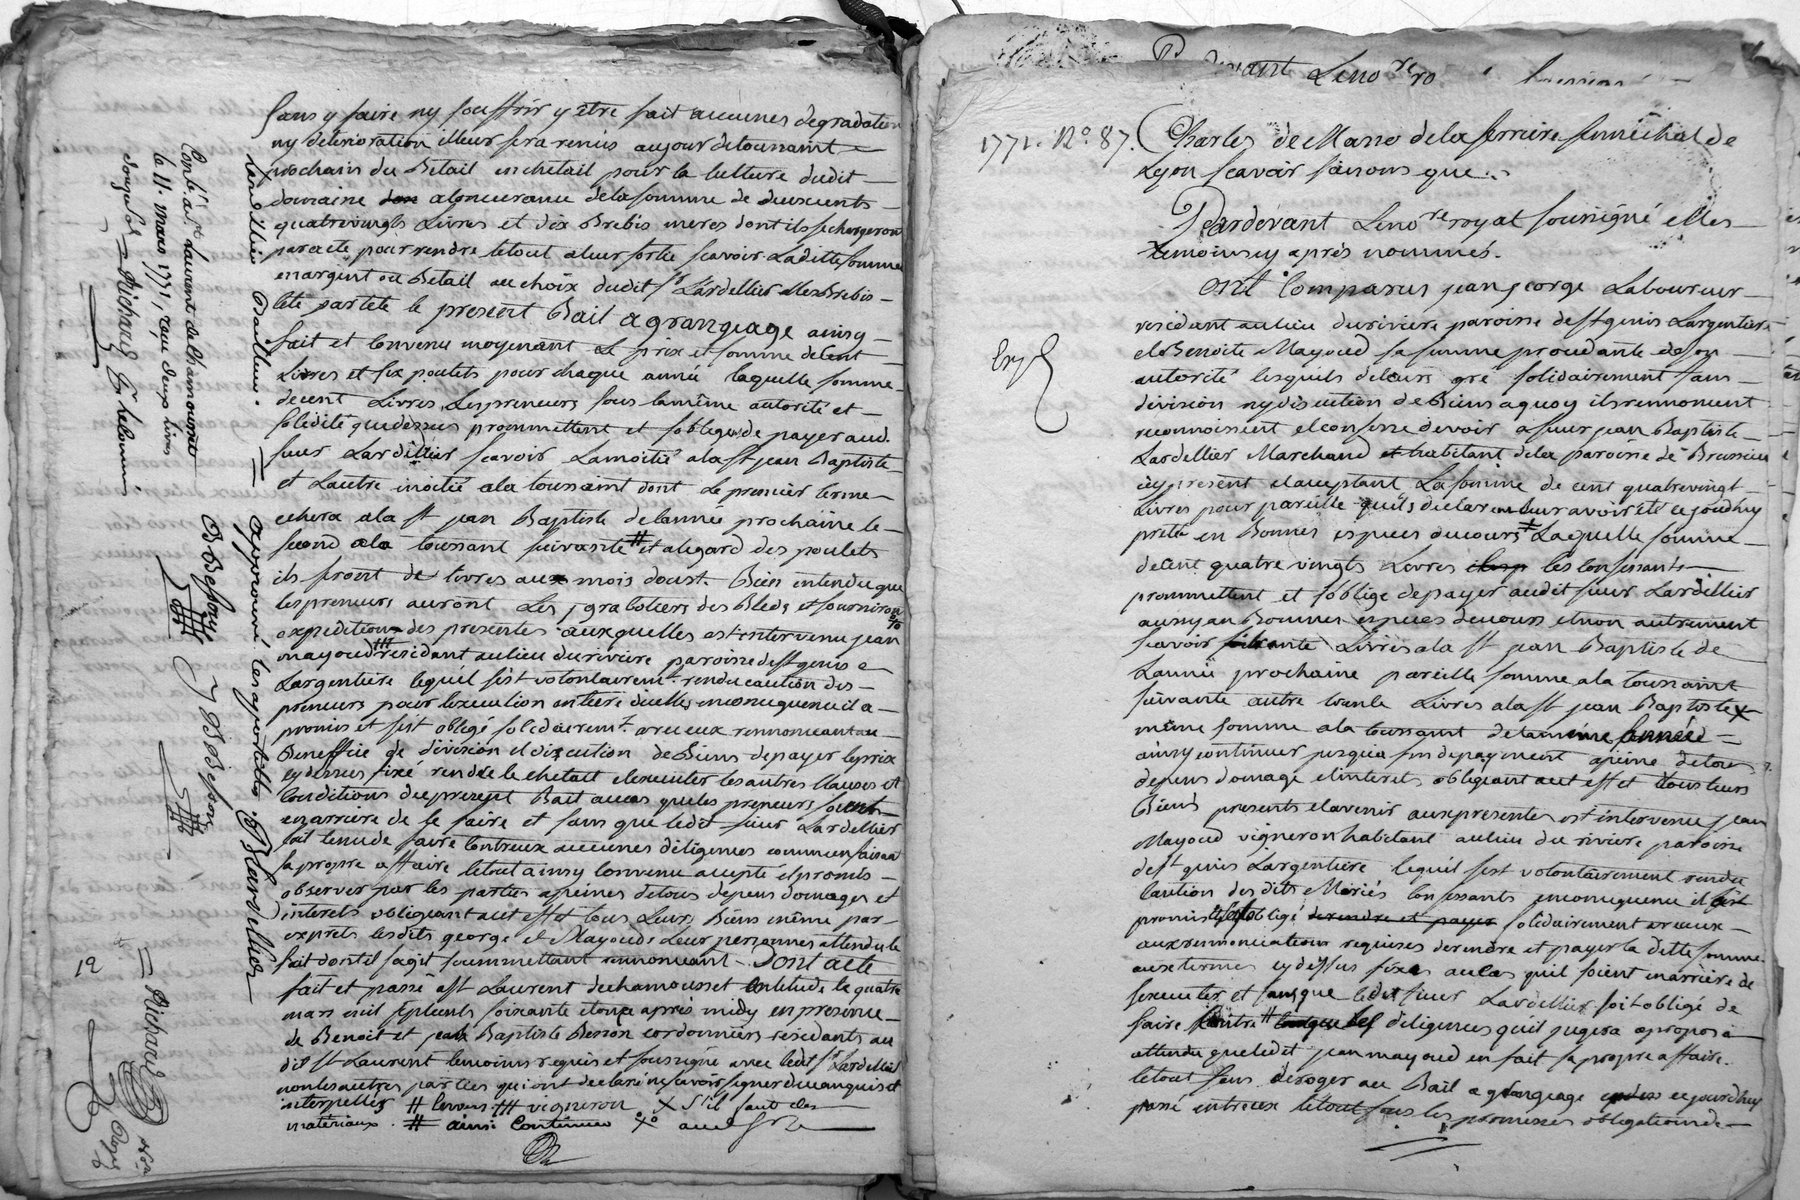 sans y faire ny souffrir y être fait aucunes degradation
ny deterioration illeur sera remis aujour detoussaint
prochain du Betail enchetail pour la culture dudit
domaine aloncurance delasomme de deuxcents
quatrevingts Livres et dix Brebis meres dont ils sechargeront
paracte pour rendre letout aleur sortie scavoir Laditte somme
enargent ou Betail au choix dudit sr Lardellier
le present Bail agrangeage ainsy
fait et Convenu moyenant Le prix et somme decent
Livres et six poulets pour chaque année laquelle somme
decent Livres Lespreneurs sous lamême autorité et
solidité quedessus prommettent et sobligent de payer aud.
sieur Lardellier scavoir Lamoitié alast jean Baptiste
et Lautre moitié ala toussaint dont Le premier terme
echera ala st jean Baptiste delannée prochaine le
second ala toussaint suivante # et alegard des poulets
ils seront delivres aux mois doust. Bien entendu que
lespreneurs auront Les des Bleds et fourniront
expedition des presentes auxquelles estintervenu jean
mayoud ### residant aulieu durivière paroisse dest genis
Largentiere lequel sest volontairemt. rendu caution des
preneurs pour lexecution entiere dicelles enconsequence il a
promis et sest obligé solidairemt. avec eux renonceantau
Beneffice de division et discution de Biens depayer leprix
cydessus fixé rendre le chetail et executer lesautres clauses et
Conditions dupresent Bail aucas queles preneurs soient
enarriere de le faire et sans que ledit sieur Lardellier
soit tenude faire Contreux aucunes diligences commenfaisant
sa propre affaire letout ainsy Convenu accepté et promis
observer par les parties apeines detous depens domages et
interets obligeant acet effet tous Leurs Biens même par
exprès lesdits george et Mayoud Leur personnes attendu le
fait dontil sagit soummettant renonceant. Dont acte
fait et passé ast Laurent dechamousset Letude le quatre
mars mil septcents soixante etonze après midy enpresence
de Benoit et jean Baptiste Besson cordonniers residants au
dit st Laurent temoins requis et soussigné avec ledit sr Lardellier
nonlesautres parties quiont declaré nescavoir signer decequis et
interpellés # ### vigneron X S'il faut des
materiaux. # ainsi continuer
Lardellier Bailleur.
Contr. à st Laurent de Chamousset
le 11 mars 1771, reçu deux livres
Richard
approuvé
B Besson
J B Besson
J B Lardellier
Richard
Nore Royal
12
Pardevant Leno re ro
1771. No. 87.
Charles de Masso dela ferriere sennechal de
Lyon scavoir faisons que..
Pardevant Leno re royal soussigné et les
temoins cy après nommés.
Ont Comparus jean george Laboureur
residant aulieu durivière paroisse dest genis Largentiere
et Benoite Mayoud sa femme procedante deson
autorité lesquels deleurs gré solidairement sans
division ny discution de Biens aquoy ils renoncent
reconnoissent et confesse devoir a sieur jean Baptiste
Lardellier Marchand et habitant dela paroisse de Brussieu
cy present et acceptant La somme de cent quatrevingt
Livres pour pareille quils declarent leur avoir été cejourdhuy
preté en Bonnes especes ducours # Laquelle somme
decent quatre vingts Livres les Confessants
prommettent et soblige depayer audit sieur Lardellier
aussy en Bonnes especes ducours et non autrement
scavoir trente Livres ala st jean Baptiste de
Lannée prochaine pareille somme ala toussaint
suivante autre trente Livres alast jean Baptiste X
même somme ala toussaint delamême année
ainsy continuer jusqua fin depayment apeine detous
depens domage et interets obligeant acet effet tous leurs
Biens presents et avenir aux presentes est intervenu jean
Mayoud vigneron habitant aulieu du rivière paroisse
dest genis Largentiere lequel sest volontairement rendu
Caution desdits Mariés Confessants enconsequence il a
promis et s'est obligé derendre et payer solidairement aveceux
aux renonciations requises derendre et payer la dette somme
auxtermes cy dessus fixés aucas quil soient enarriere de
lexecuter et sans que ledit sieur Lardellier soit obligé de
faire contre # diligences quil jugera apropos
attendu queledit jean mayoud en fait sa propre affaire.
letout sans deroger au Bail a grangeage cejourdhuy
passé entreeux letout sous les promesses obligations de